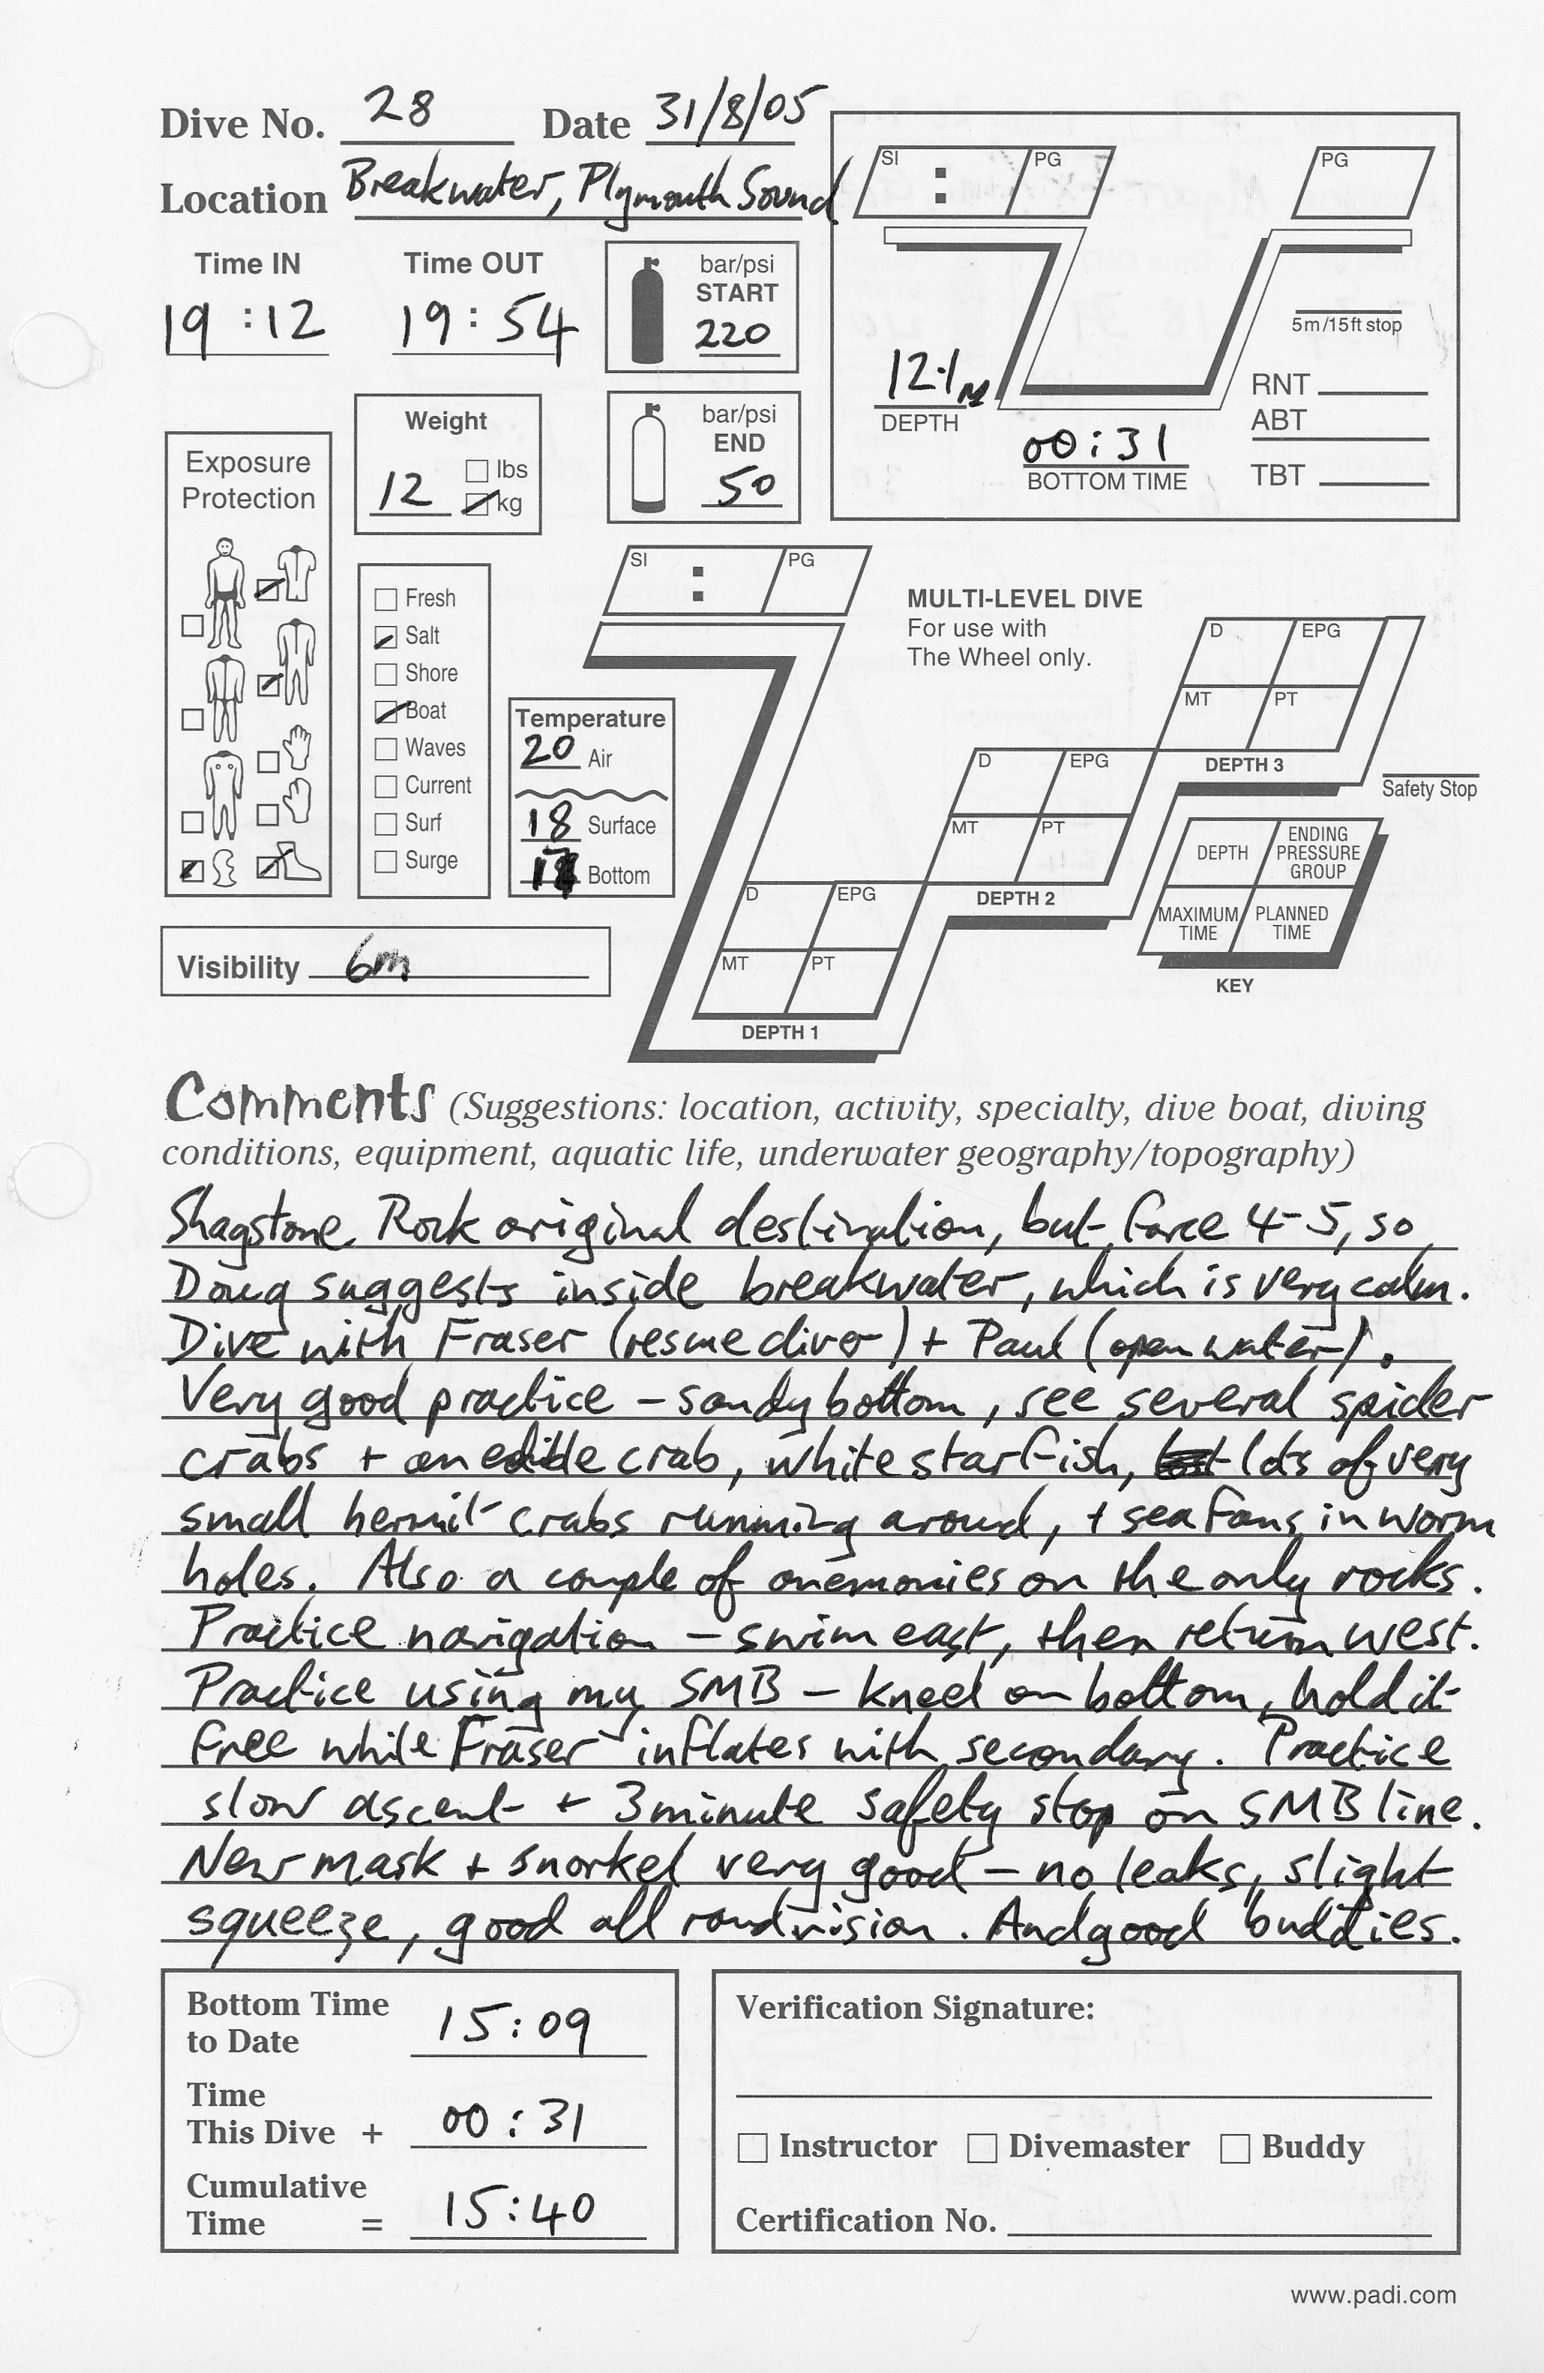 Dive No. 28 Date 31/8/05
Location Breakwater, Plymouth Sound
Time IN
19:12
Time OUT
19:54
bar/psi
START
220
bar/psi
END
50
SI : PG
PG
5m/15ft stop
12.1m
DEPTH
00:31
BOTTOM TIME
RNT
ABT
TBT
Weight
lbs
12 kg
Exposure
Protection
Fresh
Salt
Shore
Boat
Waves
Current
Surf
Surge
Temperature
20 Air
18 Surface
Bottom
Visibility 6m
SI : PG
MULTI-LEVEL DIVE
For use with
The Wheel only.
D EPG
MT PT
DEPTH 1
D EPG
MT PT
DEPTH 2
D EPG
MT PT
DEPTH 3
Safety Stop
DEPTH
ENDING
PRESSURE
GROUP
MAXIMUM
TIME
PLANNED
TIME
KEY
Comments (Suggestions: location, activity, specialty, dive boat, diving
conditions, equipment, aquatic life, underwater geography/topography)
Shagstone Rock original destination, but force 4-5, so
Doug suggests inside breakwater, which is very calm.
Dive with Fraser (rescue diver) + Paul (open water).
Very good practice - sandy bottom, see several spider
crabs + an edible crab, white starfish, lots of very
small hermit crabs running around, + sea fans in worm
holes. Also a couple of anemonies on the only rocks.
Practice navigation - swim east, then return west.
Practice using my SMB - kneel on bottom, hold it
free while Fraser inflates with secondary. Practice
slow ascent + 3 minute safety stop on SMB line.
New mask + snorkel very good - no leaks, slight
squeeze, good all round vision. And good buddies.
Bottom Time
to Date 15:09
Time
This Dive + 00:31
Cumulative
Time = 15:40
Verification Signature:
Instructor Divemaster Buddy
Certification No.
www.padi.com